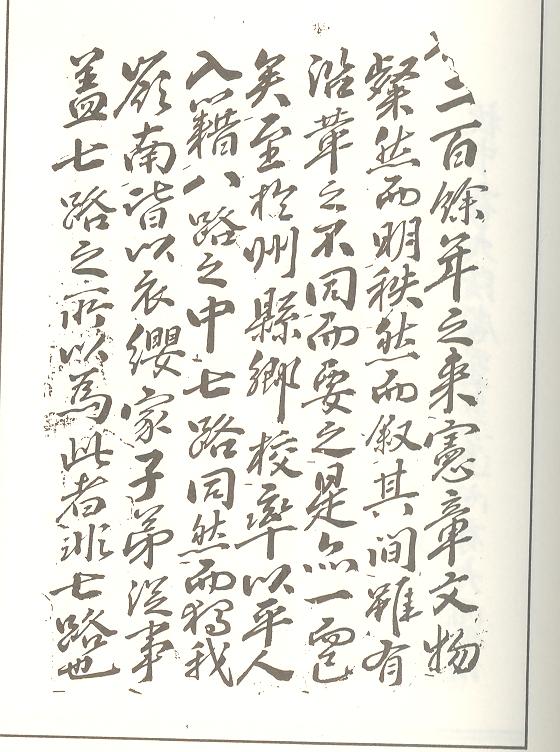 二百餘年之来憲章文物
粲然而明秩然而叙其間雖有
沿革之不同而要之是亦一而已
矣至於州縣鄉校率以平人
入籍八路之中七路同然而獨我
嶺南皆以衣纓家子弟從事
蓋七路之所以為此者非七路也